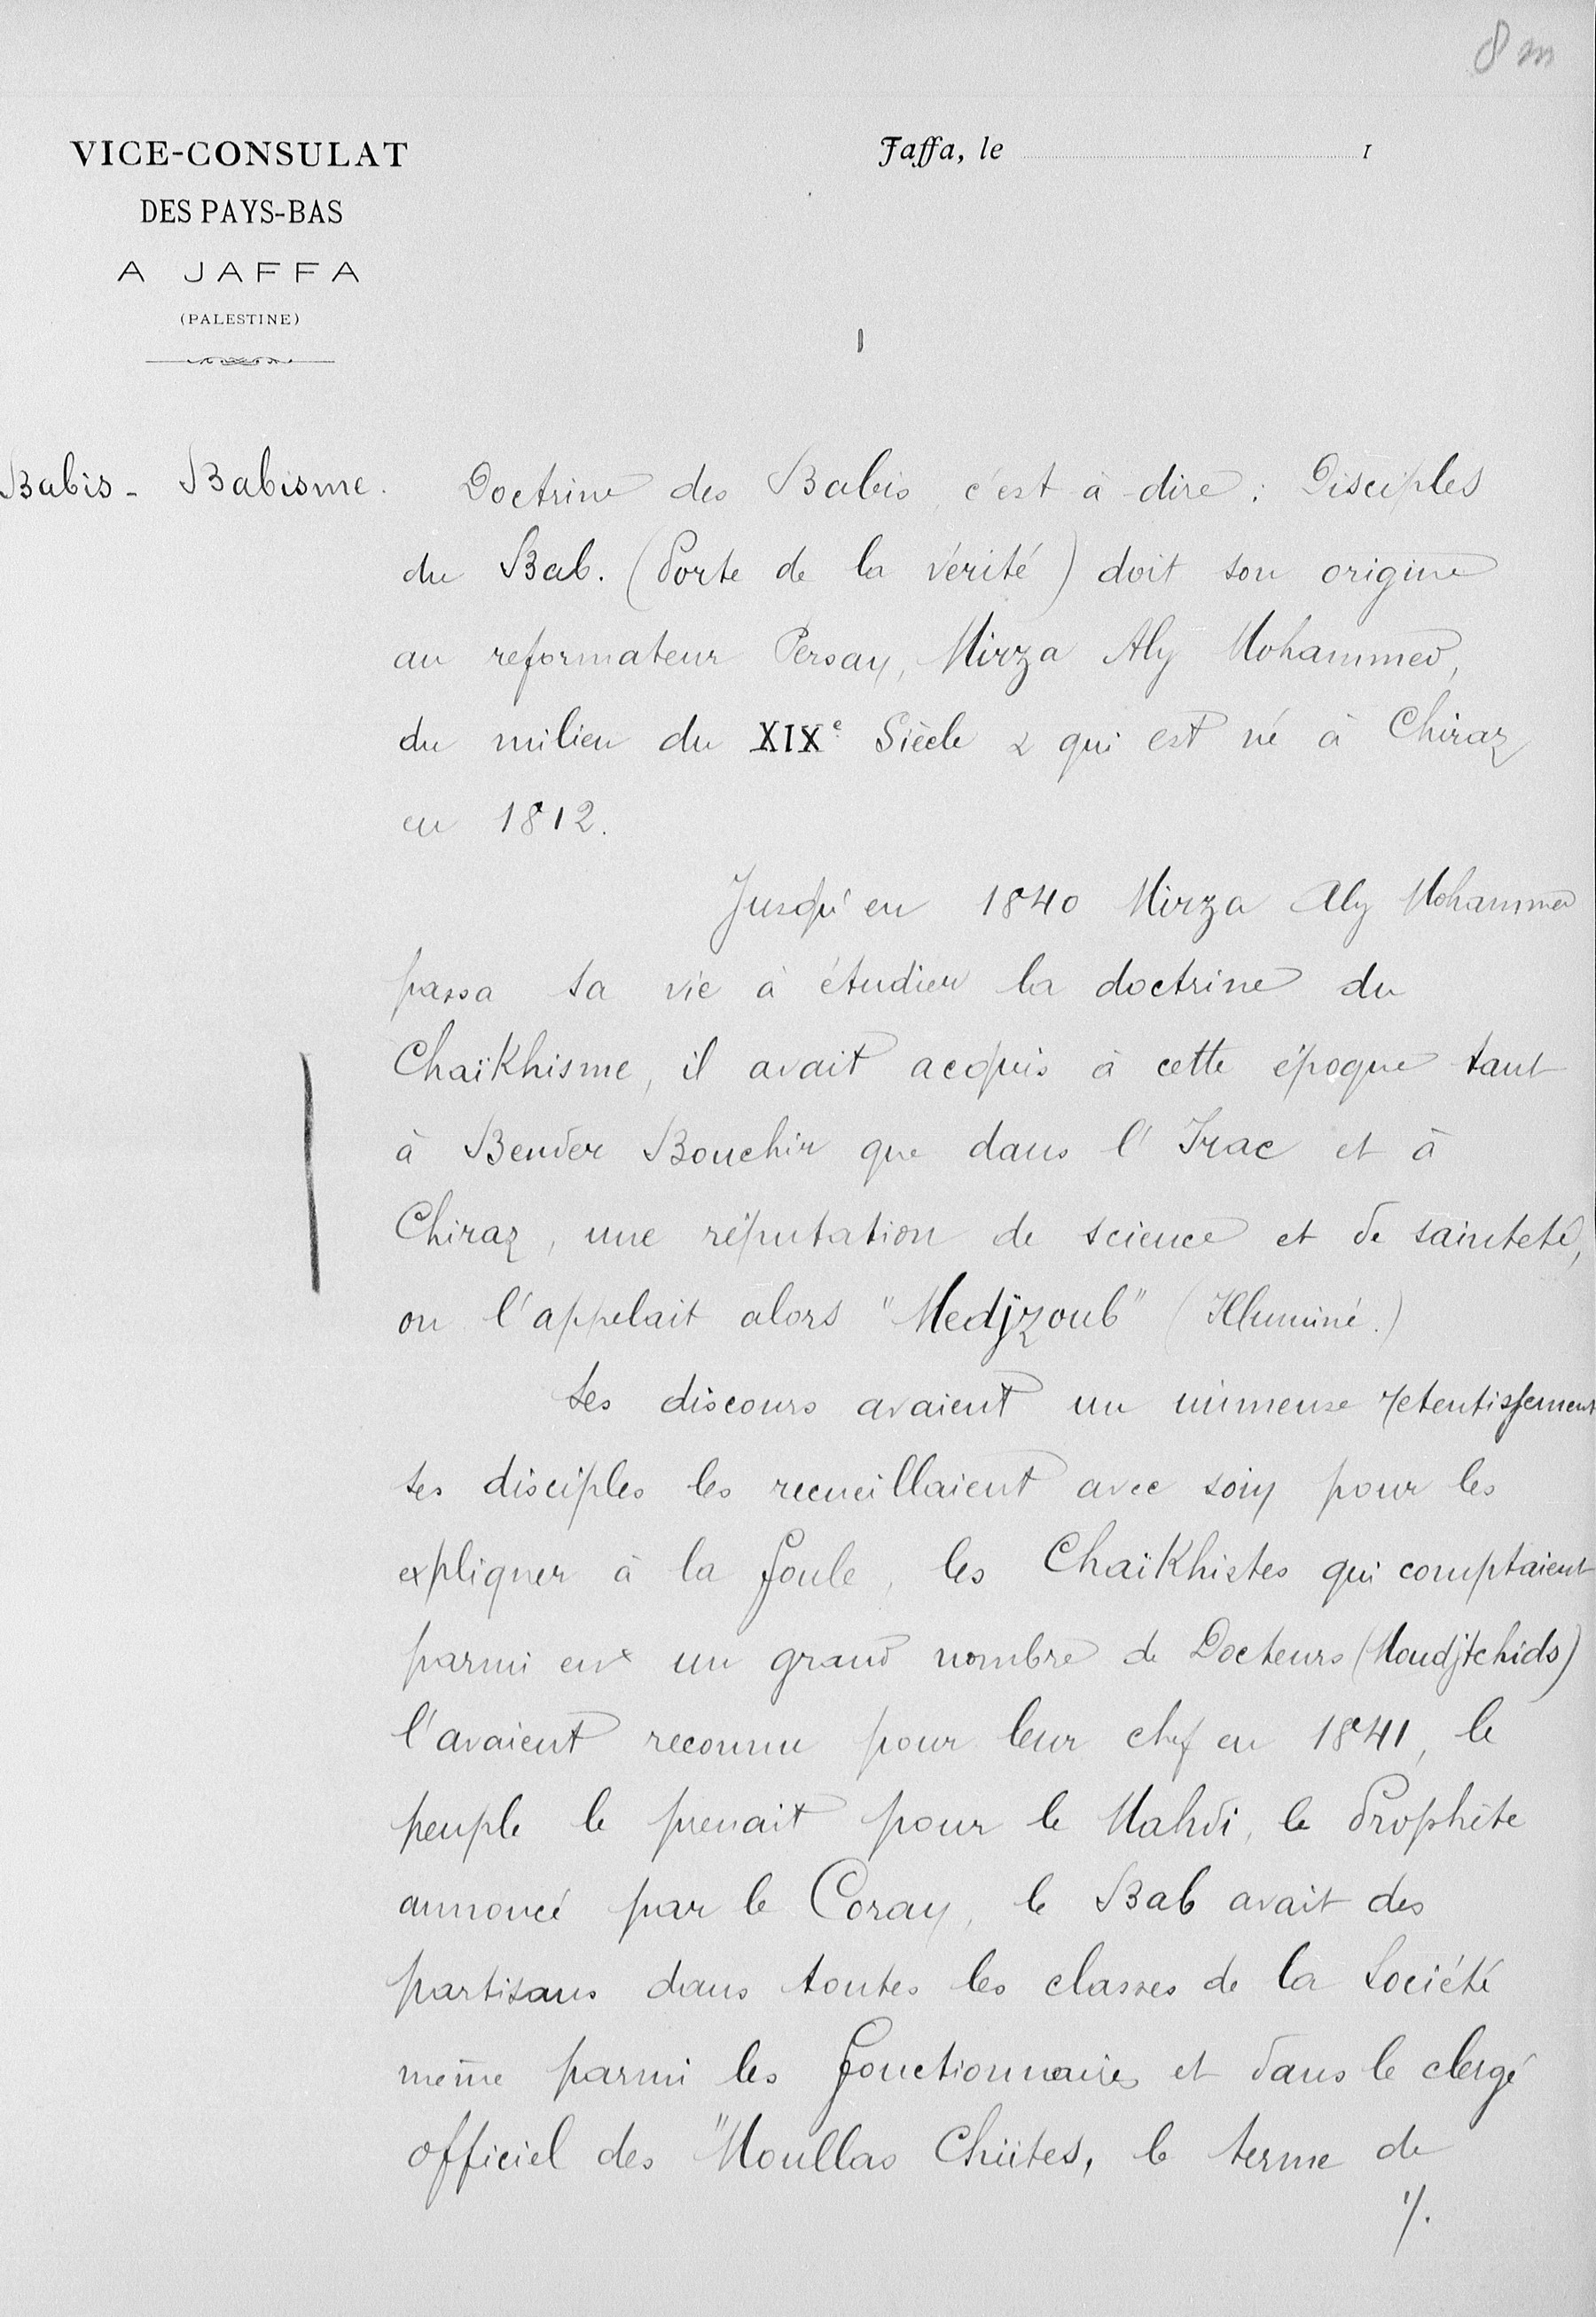 8 m
VICE-CONSULAT
DES PAYS-BAS
A JAFFA
(PALESTINE)
Jaffa, le 1
1
Babis - Babisme.
Doctrine des Babis, c'est à dire : Disciples
du Bab. (Porte de la Vérité) doit son origine
au reformateur Persan, Mirza Aly Mohammed,
du milieu du XIXe Siècle & qui est né à Chiraz
en 1812.
Jusqu'en 1840 Mirza Aly Mohammed
passa sa vie à étudier la doctrine du
Chaïkhisme, il avait acquis à cette époque tant
à Bender Bouchir que dans l'Irac et à
Chiraz, une réputation de science et de sainteté,
on l'appelait alors "Medjzoub" (Illuminé.)
Ses discours avaient un immense retentissement
ses disciples les recueillaient avec soin pour les
expliquer à la foule, les Chaïkhistes qui comptaient
parmi eux un grand nombre de Docteurs (Moudjtchids)
l'avaient reconnu pour leur chef en 1841, le
peuple le prenait pour le Mahdi, le Prophète
annoncé par le Coran, le Bab avait des
partisans dans toutes les classes de la Société
même parmi les fonctionnaires et dans le clergé
officiel des "Moullas Chiites, le terme de
./.